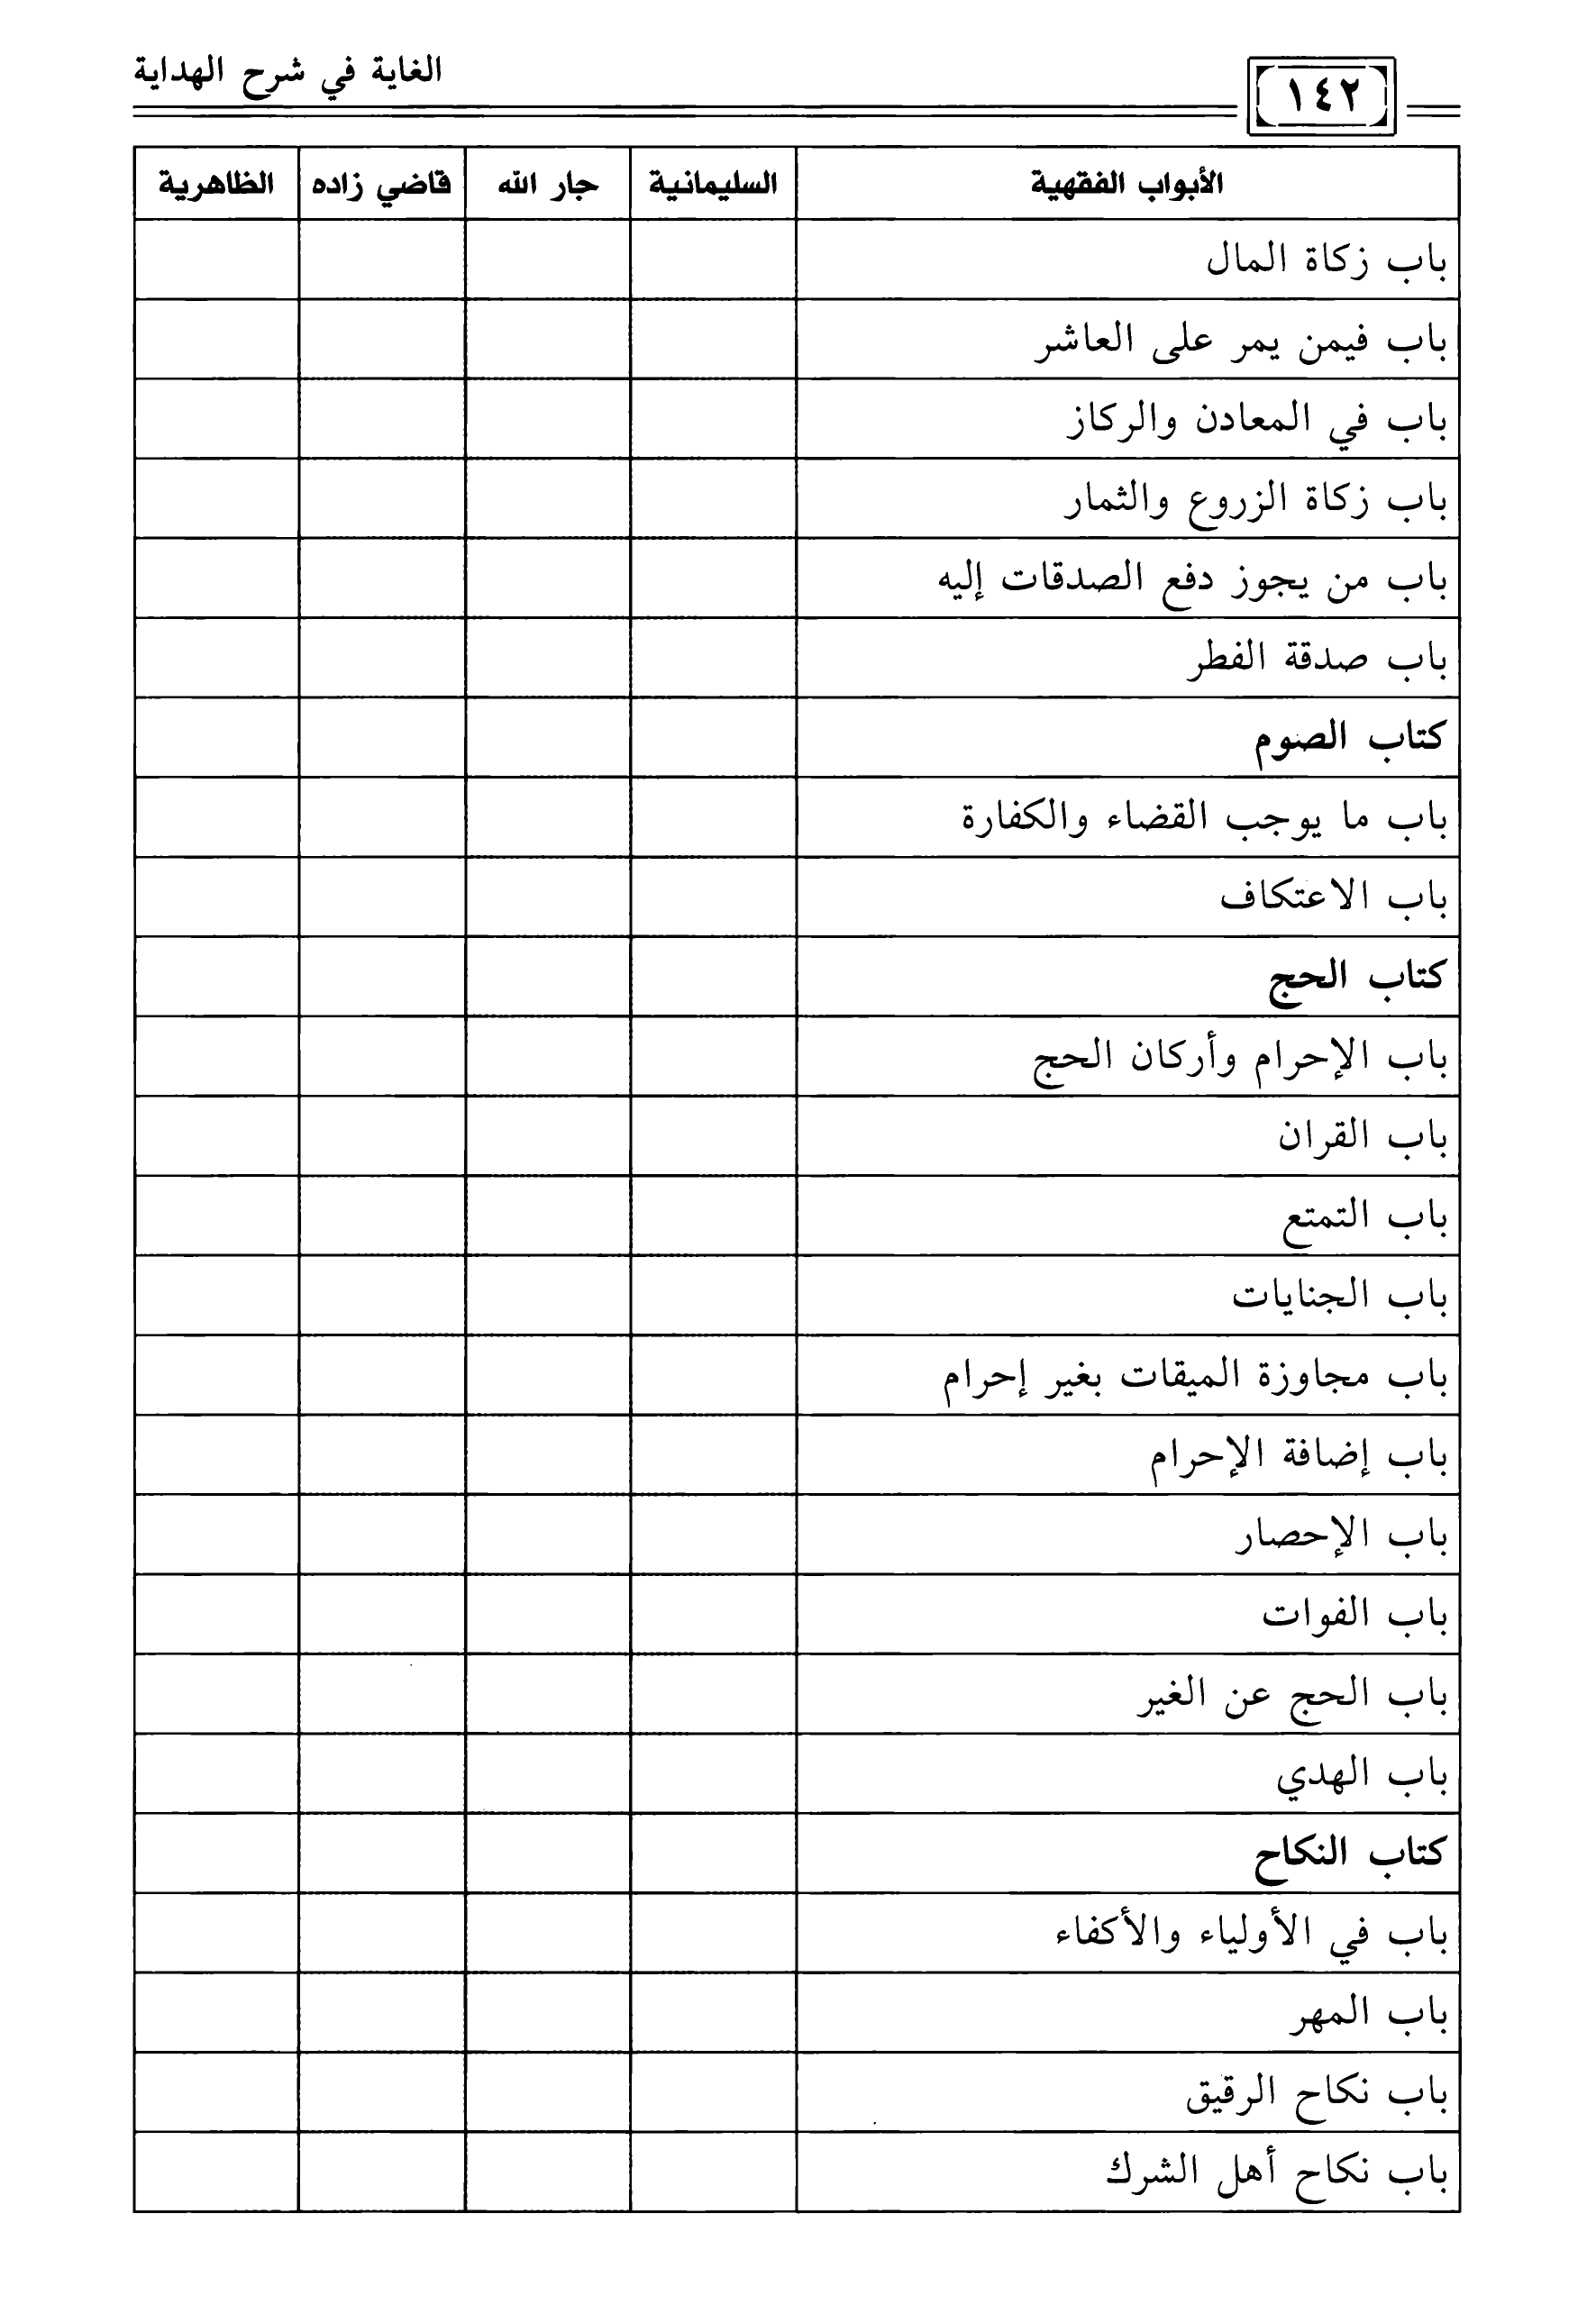 ١٤٢
الغاية في شرح الهداية
الأبواب الفقهية السليمانية جار الله قاضي زاده الظاهرية
باب زكاة المال
باب فيمن يمر على العاشر
باب في المعادن والركاز
باب زكاة الزروع والثمار
باب من يجوز دفع الصدقات إليه
باب صدقة الفطر
كتاب الصوم
باب ما يوجب القضاء والكفارة
باب الاعتكاف
كتاب الحج
باب الإحرام وأركان الحج
باب القران
باب التمتع
باب الجنايات
باب مجاوزة الميقات بغير إحرام
باب إضافة الإحرام
باب الإحصار
باب الفوات
باب الحج عن الغير
باب الهدي
كتاب النكاح
باب في الأولياء والأكفاء
باب المهر
باب نكاح الرقيق
باب نكاح أهل الشرك